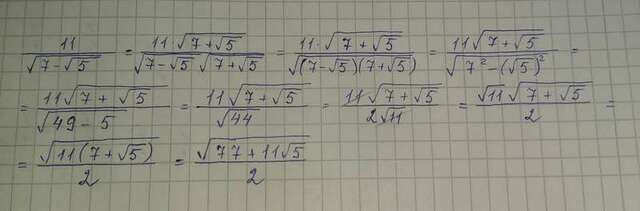 11/√(7-√5) = 11·√(7+√5)/(√(7-√5) √(7+√5)) = 11·√(7+√5)/√((7-√5)(7+√5)) = 11√(7+√5)/√(7²-(√5)²) =
= 11√(7+√5)/√(49-5) = 11√(7+√5)/√44 = 11√(7+√5)/(2√11) = √11 √(7+√5)/2 =
= √(11(7+√5))/2 = √(77+11√5)/2